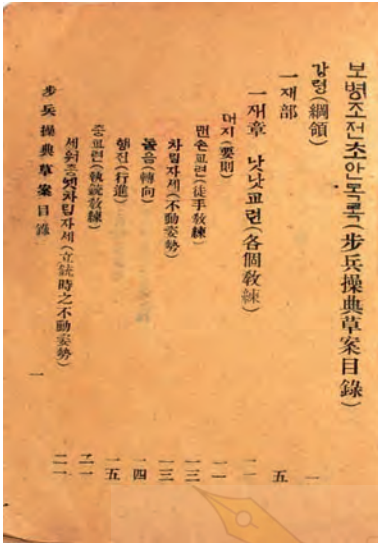 보병조전초안목록(步兵操典草案目錄)
강령(綱領) 一
一재部 五
一재章 낫낫교련(各個敎練) 一一
대지(要則) 一一
맨손교련(徒手敎練) 一三
차림자세(不動姿勢) 一三
돌음(轉向) 一四
행진(行進) 一五
총교련(執銃敎練) 二一
세워총엣차림자세(立銃時之不動姿勢) 二一
步兵操典草案目錄 一